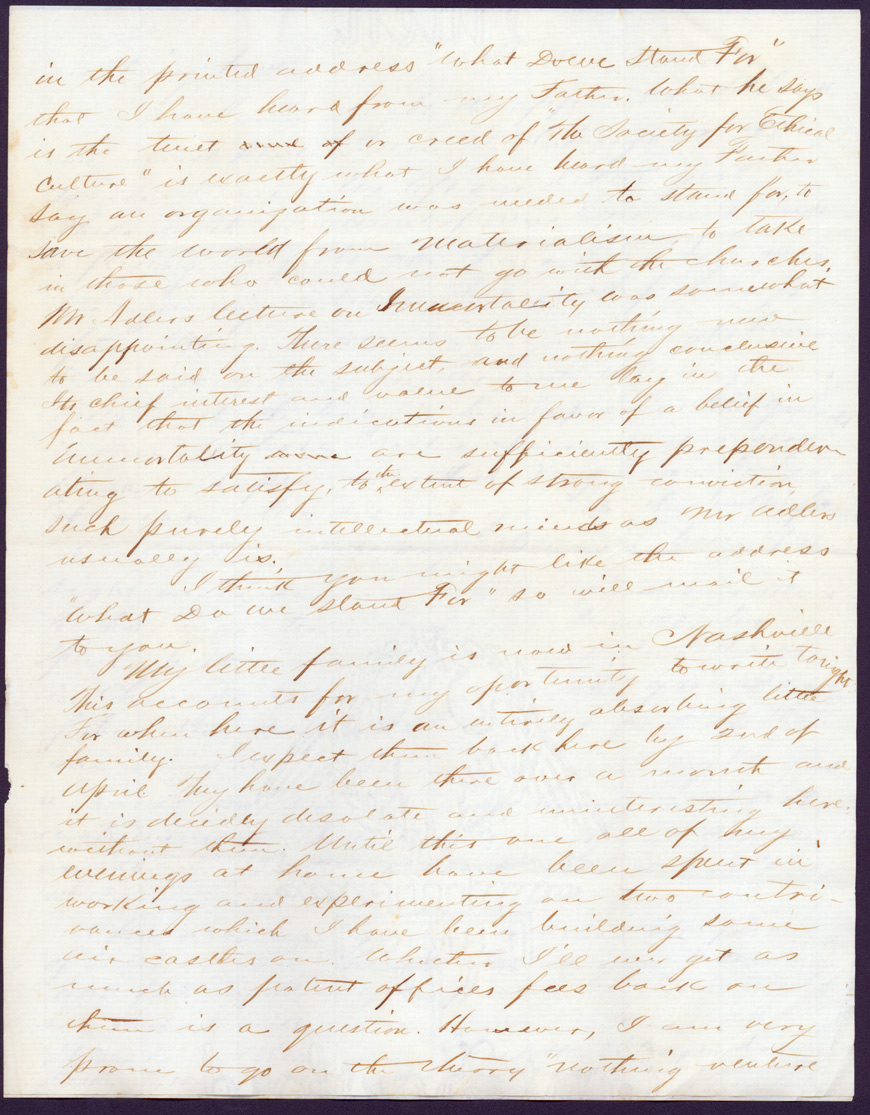 in the printed address "What Do we Stand For"
that I have heard from my Father. What he says
is the tenet or creed of "The Society for Ethical
Culture" is exactly what I have heard my Father
say an organization was needed to stand for, to
save the world from materialism, to take
in those who could not go with the churches.
Mr Adlers lecture on Immortality was somewhat
disappointing. There seems to be nothing new
to be said on the subject, and nothing conclusive
Its chief interest and value to me lay in the
fact that the indications in favor of a belief in
immortality are sufficiently preponder
ating to satisfy, to the extent of strong conviction
such purely intellectual minds as Mr Adlers
usually is.
I think you might like the address
"What Do we Stand For" so will mail it
to you.
My little family is now in Nashville
This accounts for my oportunity to write tonight
For when here it is an entirely absorbing little
family. I expect them back here by 2nd of
April They have been there over a month and
it is decidly desolate and uninteresting here
without them. Until this one all of my
evenings at home have been spent in
working and experimenting on two contri-
vances which I have been building some
air castles on. Whether I'll ever get as
much as patent offices fees back on
them is a question. However, I am very
prone to go on the theory "nothing venture